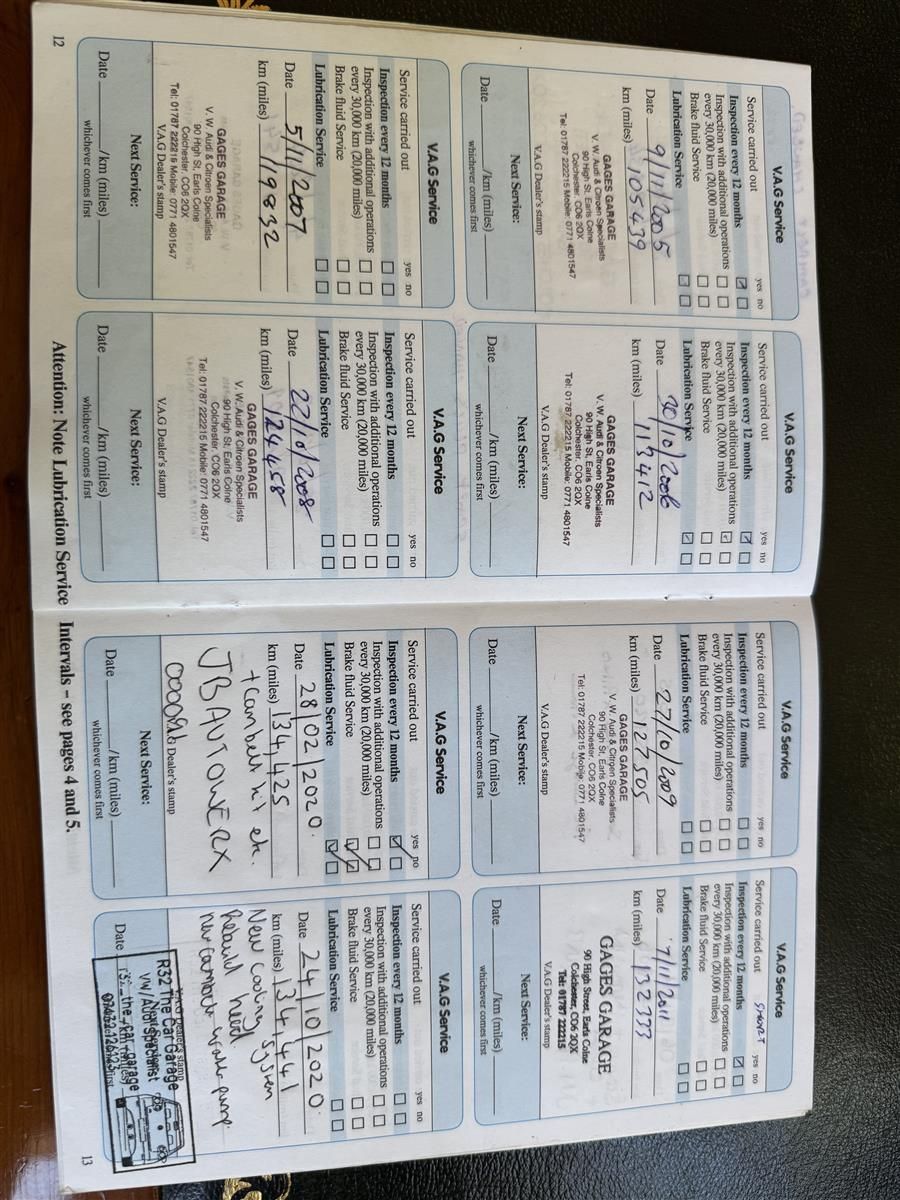 V.A.G Service
Service carried out yes no
Inspection every 12 months
Inspection with additional operations
every 30,000 km (20,000 miles)
Brake fluid Service
Lubrication Service
Date 9/11/2005
km (miles) 105439
GAGES GARAGE
V. W. Audi & Citroen Specialists
90 High St, Earls Colne
Colchester, CO6 2QX
Tel: 01787 222215 Mobile: 0771 4801547
V.A.G Dealer's stamp
Next Service:
Date /km (miles)
whichever comes first
V.A.G Service
Service carried out yes no
Inspection every 12 months
Inspection with additional operations
every 30,000 km (20,000 miles)
Brake fluid Service
Lubrication Service
Date 30/10/2006
km (miles) 113412
GAGES GARAGE
V. W. Audi & Citroen Specialists
90 High St, Earls Colne
Colchester, CO6 2QX
Tel: 01787 222215 Mobile: 0771 4801547
V.A.G Dealer's stamp
Next Service:
Date /km (miles)
whichever comes first
V.A.G Service
Service carried out yes no
Inspection every 12 months
Inspection with additional operations
every 30,000 km (20,000 miles)
Brake fluid Service
Lubrication Service
Date 5/11/2007
km (miles) 119832
GAGES GARAGE
V. W. Audi & Citroen Specialists
90 High St, Earls Colne
Colchester, CO6 2QX
Tel: 01787 222215 Mobile: 0771 4801547
V.A.G Dealer's stamp
Next Service:
Date /km (miles)
whichever comes first
V.A.G Service
Service carried out yes no
Inspection every 12 months
Inspection with additional operations
every 30,000 km (20,000 miles)
Brake fluid Service
Lubrication Service
Date 22/10/2008
km (miles) 124458
GAGES GARAGE
V. W. Audi & Citroen Specialists
90 High St, Earls Colne
Colchester, CO6 2QX
Tel: 01787 222215 Mobile: 0771 4801547
V.A.G Dealer's stamp
Next Service:
Date /km (miles)
whichever comes first
12
Attention: Note Lubrication Service Intervals – see pages 4 and 5.
V.A.G Service
Service carried out yes no
Inspection every 12 months
Inspection with additional operations
every 30,000 km (20,000 miles)
Brake fluid Service
Lubrication Service
Date 27/10/2009
km (miles) 127505
GAGES GARAGE
V. W. Audi & Citroen Specialists
90 High St, Earls Colne
Colchester, CO6 2QX
Tel: 01787 222215 Mobile: 0771 4801547
V.A.G Dealer's stamp
Next Service:
Date /km (miles)
whichever comes first
V.A.G Service
Service carried out yes no
Inspection every 12 months
Inspection with additional operations
every 30,000 km (20,000 miles)
Brake fluid Service
Lubrication Service
Date 7/11/2011
km (miles) 132333
GAGES GARAGE
90 High Street, Earls Colne
Colchester, CO6 2QX
Tel: 01787 222215
V.A.G Dealer's stamp
Next Service:
Date /km (miles)
whichever comes first
V.A.G Service
Service carried out yes no
Inspection every 12 months
Inspection with additional operations
every 30,000 km (20,000 miles)
Brake fluid Service
Lubrication Service
Date 28/02/2020.
km (miles) 134,425
+ Cambelt kit etc.
JB AUTOWERX
Dealer's stamp
Next Service:
Date /km (miles)
whichever comes first
V.A.G Service
Service carried out yes no
Inspection every 12 months
Inspection with additional operations
every 30,000 km (20,000 miles)
Brake fluid Service
Lubrication Service
Date 24/10/2020.
km (miles) 134,441
New cooling System
Rebuild head
new cambelt water pump.
R32 The Car Garage
VW/Audi specialist
Date
13